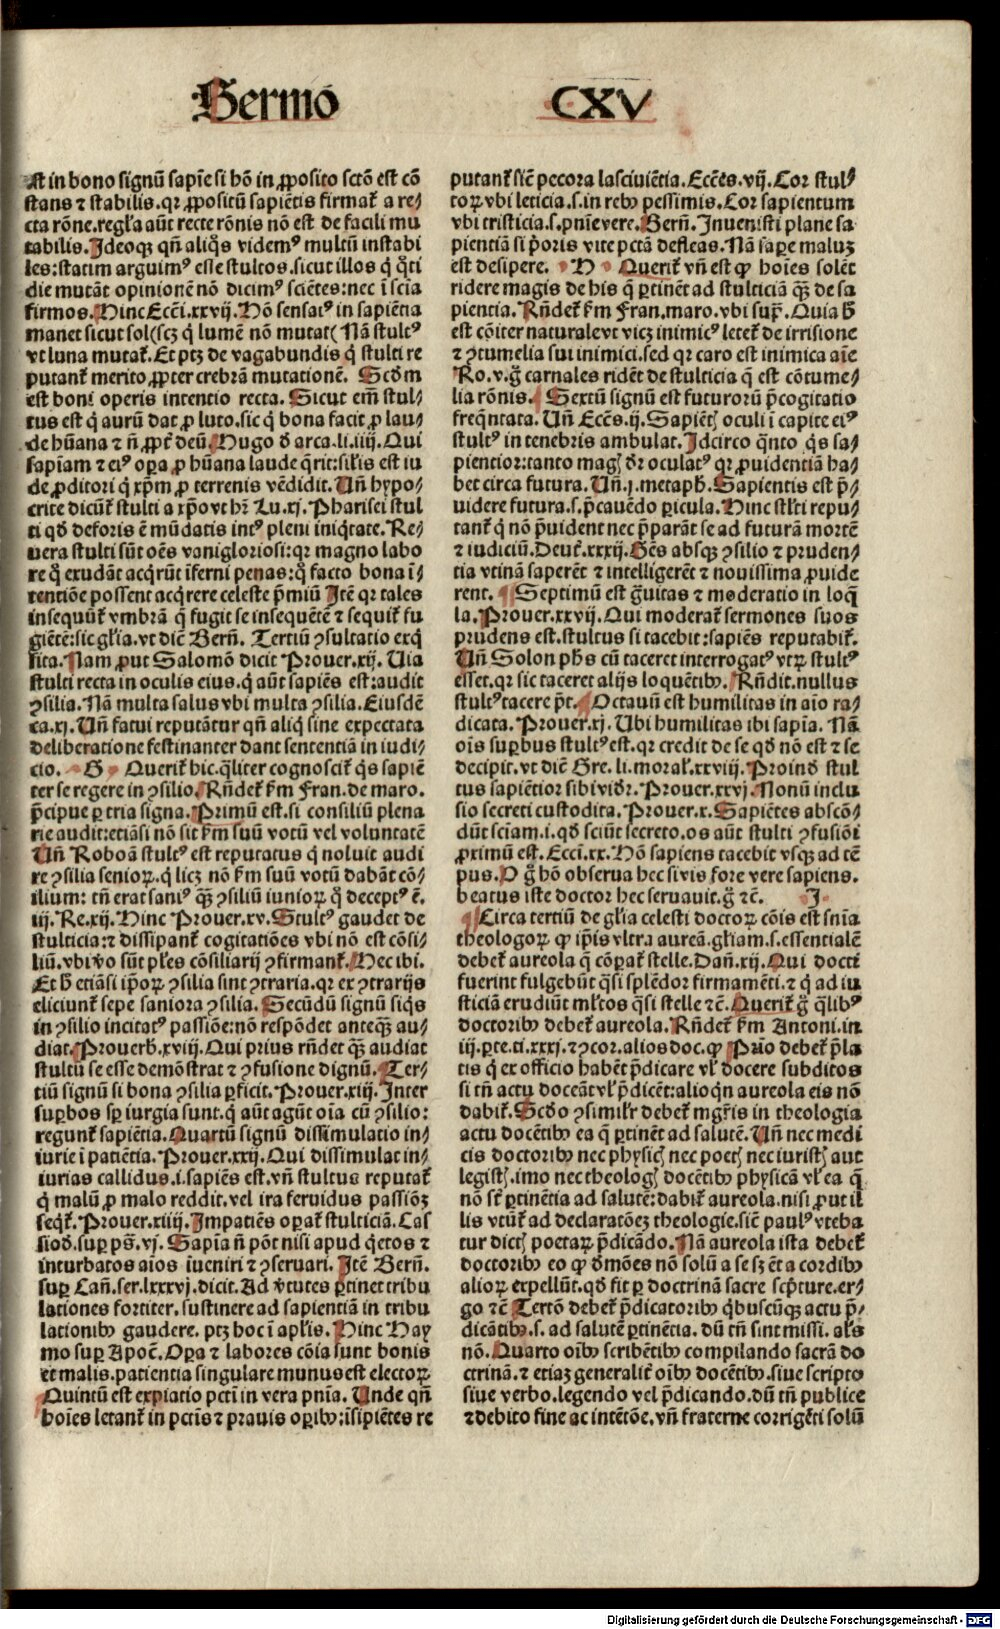 Sermō CXV
st in bono signū sapīe si hō in ꝓposito sctō est cō
stans ⁊ stabilis. qr ꝓpositū sapiētis firmat᷑ a re⸗
cta rōne. regl'a aūt recte rōnis nō est de facili mu
tabilis. Ideoqꝫ qn̄ aliq̄s videmꝰ multū instabi
les: statim arguimꝰ esse stultos. sicut illos q̇ q̊ti
die mutāt opinionē nō dicimꝰ sciētes: nec ī scīa
firmos. Hinc Ecci. xxvij. Hō sensatꝰ in sapiētia
manet sicut sol (scꝫ q̇ lumē nō mutat) Nā stultꝰ
vt luna mutat᷑. Et ptꝫ de vagabundis q̇ stulti re
putant᷑ merito ꝓpter crebrā mutationē. Scd̄m
est boni operis intentio recta. Sicut em̄ stul⸗
tus est q̇ aurū dat ꝓ luto. sic q̇ bona facit ꝓ lau⸗
de hūana ⁊ n̄ ꝓpt̄ deū. Hugo d̄ arca. li. iiij. Qui
sapīam ⁊ eiꝰ oꝑa ꝓ hūana laude q̄rit: sil'is est iu
de ꝓditori q̇ xp̄m ꝓ terrenis vēdidit. Un̄ hypo⸗
crite dicūt᷑ stulti a xp̄o vt hr̄ Lu. xj. Pharisei stul
ti qd̄ deforis ē mūdatis intꝰ pleni iniq̇tate. Re⸗
uera stulti sūt oēs vanigloriosi: qr magno labo
re q̇ exudāt acq̇rūt īferni penas: q̊ facto bona ī⸗
tentiōe possent acq̇rere celeste p̄miū Itē qr tales
insequūt᷑ vmbrā q̄ fugit se insequētē ⁊ sequit᷑ fu
giētē: sic gl'ia. vt dic̄ Bern̄. Tertiū ꝯsultatio exq̇
sita. Nam ꝓut Salomō dicit Prouer. xij. Uia
stulti recta in oculis eius. q̇ aūt sapiēs est: audit
ꝯsilia. Nā multa salus vbi multa ꝯsilia. Eiusdē
ca. xj. Un̄ fatui reputātur qn̄ aliq̇ sine expectata
deliberatione festinanter dant sententiā in iudi⸗
cio. G Querit᷑ hic. q̄liter cognoscit᷑ q̇s sapiē
ter se regere in ꝯsilio. Rn̄det᷑ ẜm Fran. de maro.
p̄cipue ꝑ tria signa. Primū est. si consiliū plena
rie audit: etiāsi nō sit ẜm suū votū vel voluntatē
Un̄ Roboā stultꝰ est reputatus q̇ noluit audi
re ꝯsilia senioꝝ. q̇ licꝫ nō ẜm suū votū dabāt cō⸗
silium: tn̄ erat saniꝰ qꝫ̄ ꝯsiliū iunioꝝ q̊ deceptꝰ ē.
iij. Re. xij. Hinc Prouer. xv. Stultꝰ gaudet de
stulticia: ⁊ dissipant᷑ cogitatiōes vbi nō est cōsi⸗
liū. vbi v̊o sūt pl'es cōsiliarij ꝯfirmant᷑. Hec ibi.
Et h̄ etiāsi ip̄oꝝ ꝯsilia sint ꝯtraria. qr ex ꝯtrarijs
eliciunt᷑ sepe saniora ꝯsilia. Secūdū signū siq̇s
in ꝯsilio incitatꝰ passiōe: nō respōdet anteqꝫ̄ au⸗
diat. Prouerb. xviij. Qui prius rn̄det qꝫ̄ audiat
stultū se esse demōstrat ⁊ ꝯfusione dignū. Ter⸗
tiū signū si bona ꝯsilia ꝑficit. Prouer. xiij. Inter
suꝑbos sꝑ iurgia sunt. q̇ aūt agūt oīa cū ꝯsilio:
regunt᷑ sapiētia. Quartū signū dissimulatio in⸗
iurie ī patiētia. Prouer. xxij. Qui dissimulat in⸗
iurias callidus. i. sapiēs est. vn̄ stultus reputat᷑
q̇ malū ꝓ malo reddit. vel ira feruidus passiōꝫ
seq̇t᷑. Prouer. xiiij. Impatiēs oꝑat᷑ stulticiā. Cas
siod̄. suꝑ ps̄. vj. Sapīa n̄ pōt nisi apud q̇etos ⁊
inturbatos aīos iueniri ⁊ ꝯseruari. Itē Bern̄.
suꝑ Can̄. ser. lxxxvj. dicit. Ad v̊tutes ꝑtinet tribu
lationes fortiter. sustinere ad sapientiā in tribu
lationibꝰ gaudere. ptꝫ hoc ī apl'is. Hinc Hay
mo suꝑ Apoc̄. Oꝑa ⁊ labores cōia sunt bonis
et malis. patientia singulare munus est electoꝝ.
Quintū est expiatio pctī in vera pn̄ia. Unde qn̄
hoīes letant᷑ in pctīs ⁊ prauis oꝑibꝰ: īsipiētes re
putant᷑ sic̄ pecora lasciuiētia. Ecc̄es. vij. Cor stulꝰ
toꝝ vbi leticia. s. in rebꝰ pessimis. Cor sapientum
vbi tristicia. s. pn̄ie vere. Bern̄. Inuenisti plane sa
pientiā si p̄oris vite pctā defleas. Nā saꝑe maluꝫ
est desipere. H Querit᷑ vn̄ est ꝙ hoīes solēt
ridere magis de his q̄ ꝑtinēt ad stulticiā qꝫ̄ de sa
pientia. Rn̄det᷑ ẜm Fran. maro. vbi sup̄. Quia h̄
est cōiter naturale vt vicꝫ inimicꝰ letet᷑ de irrisione
⁊ ꝯtumelia sui inimici. sed qr caro est inimica aīe
Ro. v. g̊ carnales ridēt de stulticia q̄ est cōtume⸗
lia rōnis. Sextū signū est futuroꝝ p̄cogitatio
freq̄ntata. Un̄ Ecc̄s. ij. Sapiētꝭ oculi ī capite eiꝰ
stultꝰ in tenebris ambulat. Idcirco q̄nto q̇s sa⸗
pientior: tanto magꝭ dr̄ oculatꝰ qr ꝓuidentiā ha⸗
bet circa futura. Un̄. j. metaph̄. Sapientis est p̄⸗
uidere futura. s. p̄cauēdo ꝑicula. Hinc stl'ti repu⸗
tant᷑ q̇ nō p̄uident nec p̄parāt se ad futurā mortē
⁊ iudiciū. Deut᷑. xxxij. Gēs absqꝫ ꝯsilio ⁊ pruden⸗
tia vtinā saperēt ⁊ intelligerēt ⁊ nouissima ꝓuide
rent. Septimū est g̊uitas ⁊ moderatio in loq̄
la. Prouer. xxvij. Qui moderat᷑ sermones suos
prudens est. stultus si tacebit: sapiēs reputabit᷑.
Un̄ Solon ph̄s cū taceret interrogatꝰ vtꝝ stultꝰ
esset. qr sic taceret alijs loquētibꝰ. Rn̄dit. nullus
stultꝰ tacere p̄t. Octauū est humilitas in aīo ra⸗
dicata. Prouer. xj. Ubi humilitas ibi sapīa. Nā
oīs suꝑbus stultꝰ est. qr credit de se qd̄ nō est ⁊ se
decipit. vt dic̄ Gre. li. moral'. xxviij. Proind̄ stul
tus sapiētior sibi vid̄r. Prouer. xxvj. Nonū inclu
sio secreti custodita. Prouer. x. Sapiētes abscō⸗
dūt sciam. i. qd̄ sciūt secreto. os aūt stulti ꝯfusiōi
ꝓximū est. Ecci. xx. Hō sapiens tacebit vsqꝫ ad tē
pus. O g̊ hō obserua hec si vis fore vere sapiens.
beatus iste doctor hec seruauit. g̊ ⁊c̄. I
Circa tertiū de gl'ia celesti doctoꝝ cōis est sn̄ia
theologoꝝ ꝙ ip̄is vltra aureā. gl'iam. s. essentialē
debet᷑ aureola q̄ cōꝑat᷑ stelle. Dan̄. xij. Qui docti
fuerint fulgebūt q̄si splēdor firmamēti. ⁊ q̇ ad iu
sticiā erudiūt ml'tos q̄si stelle ⁊c̄. Querit᷑ g̊ q̇libꝰ
doctoribꝰ debet᷑ aureola. Rn̄det᷑ ẜm Antoni. in
iij. ꝑte. ti. xxxj. ⁊ ꝯcor. alios doc. ꝙ Prīo debet᷑ p̄la
tis q̇ ex officio habēt p̄dicare vl' docere subditos
si tn̄ actu doceāt vl' p̄dicēt: alioqn aureola eis nō
dabit᷑. Scd̄o ꝯsimil'r debet᷑ mgr̄is in theologia
actu docētibꝰ ea q̄ ꝑtinēt ad salutē. Un̄ nec medi
cis doctoribꝰ nec physicꝭ nec poetꝭ nec iuristꝭ aut
legistꝭ. imo nec theologꝭ docētibꝰ physicā vl' ea q̄
nō st̄ ꝑtinētia ad salutē: dabit᷑ aureola. nisi ꝓut il
lis vtūt᷑ ad declaratōeꝫ theologie. sic̄ paulꝰ vteba
tur dictꝭ poetaꝝ p̄dicādo. Nā aureola ista debet᷑
doctoribꝰ eo ꝙ d̄mōes nō solū a se sꝫ ēt a cordibꝰ
alioꝝ expellūt. qd̄ fit ꝑ doctrinā sacre scp̄ture. er⸗
go ⁊c̄ Tertō debet᷑ p̄dicatoribꝰ q̇buscūqꝫ actu p̄⸗
dicātibꝰ. s. ad salutē ꝑtinētia. dū tn̄ sint missi. al's
nō. Quarto oībꝰ scribētibꝰ compilando sacrā do
ctrinā. ⁊ etiaꝫ generalit᷑ oībꝰ docētibꝰ. siue scripto
siue verbo. legendo vel p̄dicando. dū tn̄ publice
⁊ debito fine ac intētōe. vn̄ fraterne corrigēti solū
Digitalisierung gefördert durch die Deutsche Forschungsgemeinschaft - DFG